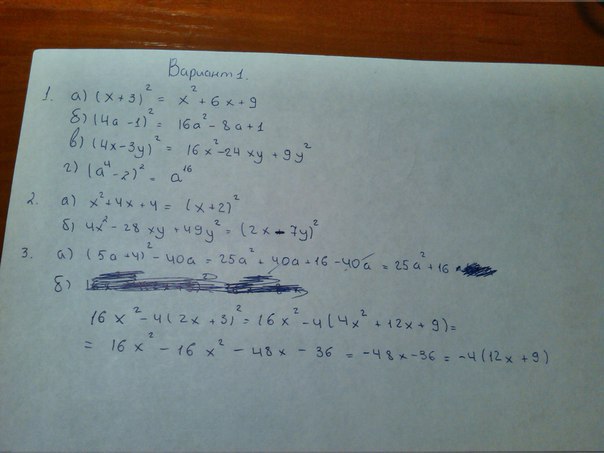 Вариант 1.
1. а) (x+3)² = x² + 6x + 9
б) (4a - 1)² = 16a² - 8a + 1
в) (4x - 3y)² = 16x² - 24xy + 9y²
г) (a⁴ - 2)² = a¹⁶
2. а) x² + 4x + 4 = (x+2)²
б) 4x² - 28xy + 49y² = (2x - 7y)²
3. а) (5a+4)² - 40a = 25a² + 40a + 16 - 40a = 25a² + 16
б)
16x² - 4(2x+3)² = 16x² - 4(4x² + 12x + 9) =
= 16x² - 16x² - 48x - 36 = -48x - 36 = -4(12x + 9)